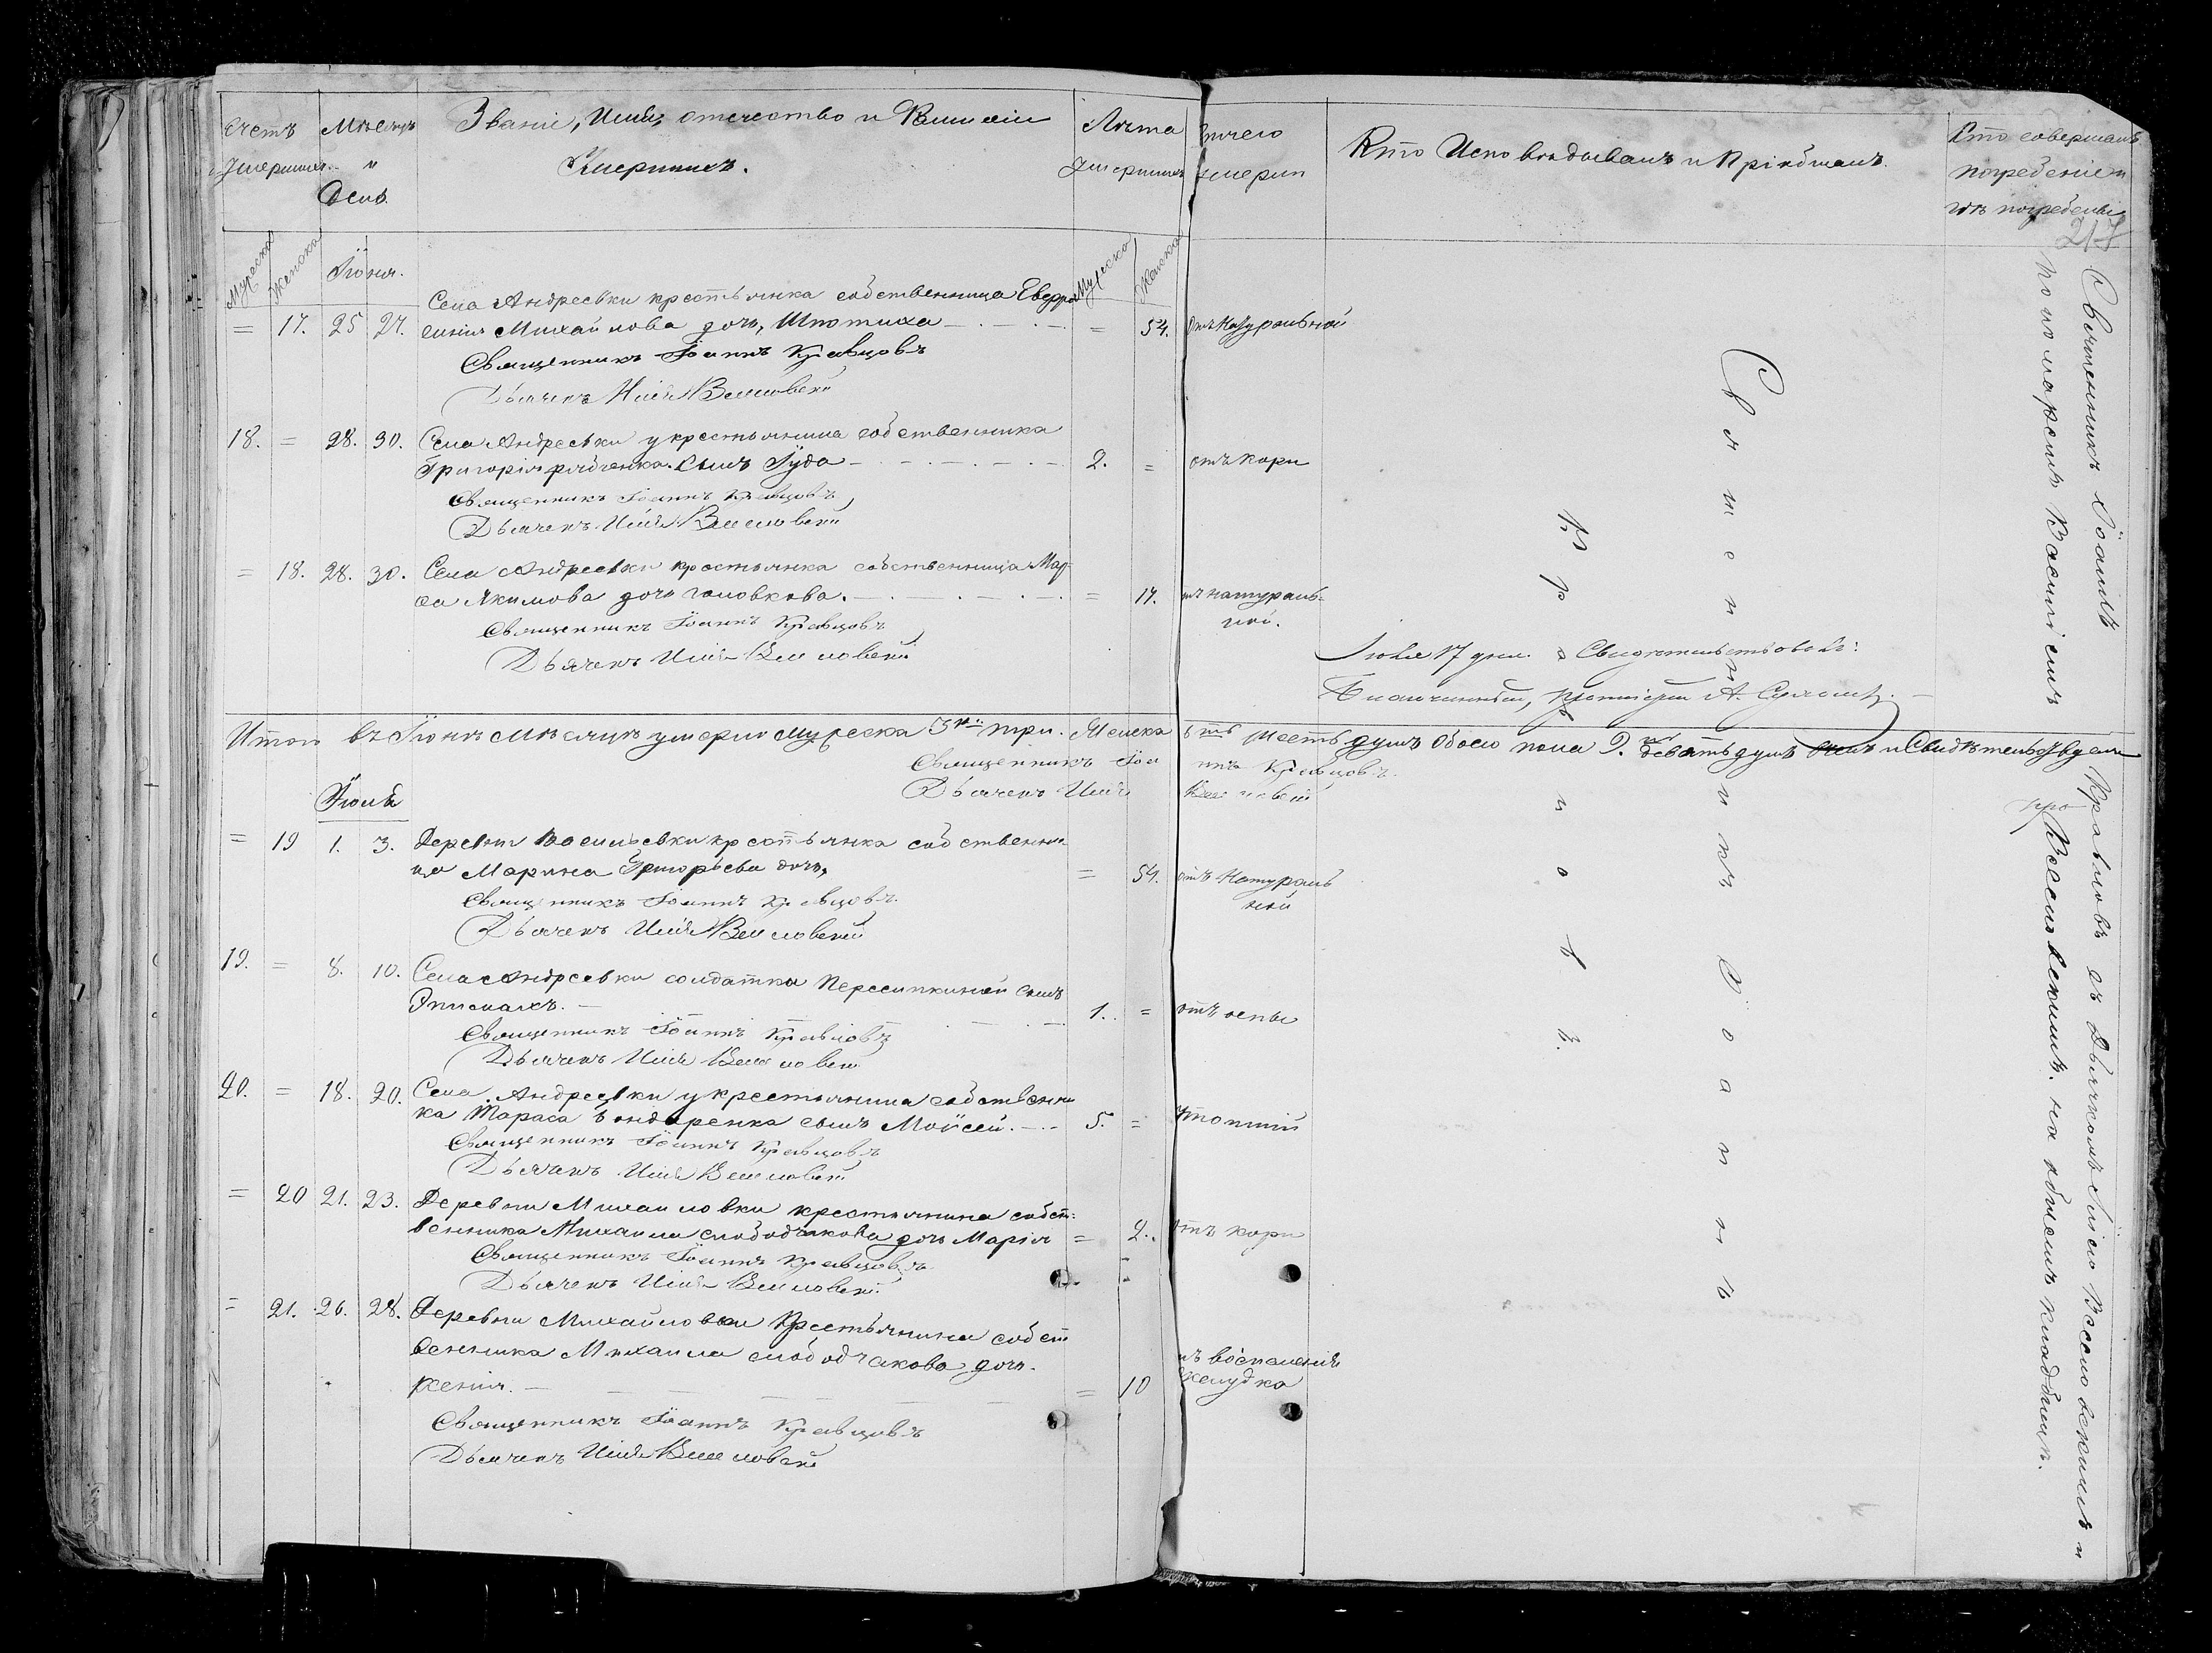 Счетъ Умершихъ
Мѣсяцъ и День
Званіе, Имя, отечество и Фамилія
Умершихъ.
Лѣта Умершихъ
Отчего умерли
Кто Исповѣдывалъ и Пріобщалъ.
Кто совершалъ
погребеніе и
гдѣ погребены
217
Мужеска Женска
Іюня.
Мужеска Женска
= 17. 25 27. Села Андреевки крестьянка собственница Евфро
синія Михайлова дочь, = 54. отъ Натуральной
Священникъ Іоаннъ Кравцовъ
Дьячекъ Илія Веселовскій
18. = 28. 30. Села Андреевки у крестьянина собственника
Григорія Рябченка сынъ Іуда 2. = отъ кори
Священникъ Іоаннъ Кравцовъ
Дьячекъ Илія Веселовскій
= 18. 28. 30. Села Андреевки крестьянка собственница Мар
ѳа Якимова дочь Головкова. = 17. отъ натураль=
ной.
Священникъ Іоаннъ Кравцовъ
Дьячекъ Илія Веселовскій
Іюля 17 дня. Свидѣтельствовалъ:
Благочинный, Протоіерей А.
Итого въ Іюнѣ Мѣсяцѣ умерло мужеска 3 три. Женска 6 шесть душъ обоего пола 9. девять душъ и Свидѣтельствуемъ
Священникъ Іоаннъ Кравцовъ.
Дьячекъ Илія Веселовскій
Іюль
= 19 1. 3. Деревни Васильевки крестьянка собственни
ца Марина Григорьева дочь, = 54. отъ Натураль
ной
Священникъ Іоаннъ Кравцовъ.
Дьячекъ Илія Веселовскій
19. = 8. 10. Села Андреевки солдатка Пересипкиной сынъ
Эпимахъ. 1. = отъ оспы
Священникъ Іоаннъ Кравцовъ
Дьячекъ Илія Веселовскій
20. = 18. 20. Села Андреевки у крестьянина собственни
ка Тараса Бондаренка сынъ Моисей. 5. =
Священникъ Іоаннъ Кравцовъ
Дьячекъ Илія Веселовскій
= 20 21. 23. Деревни Михайловки крестьянина собст=
венника Михаила Слободчакова дочь Марія = 2. отъ кори
Священникъ Іоаннъ Кравцовъ
Дьячекъ Илія Веселовскій
= 21. 26. 28. Деревни Михайловки Крестьянина собст
венника Михаила Слободчакова дочь
Ксенія. = 10 отъ воспаленія
желудка
Священникъ Іоаннъ Кравцовъ
Дьячекъ Илія Веселовскій
Священникъ Іоаннъ
Кравцовъ.
Священникъ Іоаннъ Кравцовъ съ Дьячкомъ Иліею Веселовскимъ и
пономаремъ Василіемъ Веселовскимъ. на общемъ кладбищѣ.